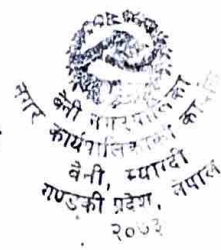 बेनी नगरपालिका
नगर कार्यपालिकाको कार्यालय
बेनी, म्याग्दी
गण्डकी प्रदेश, नेपाल
२०७३